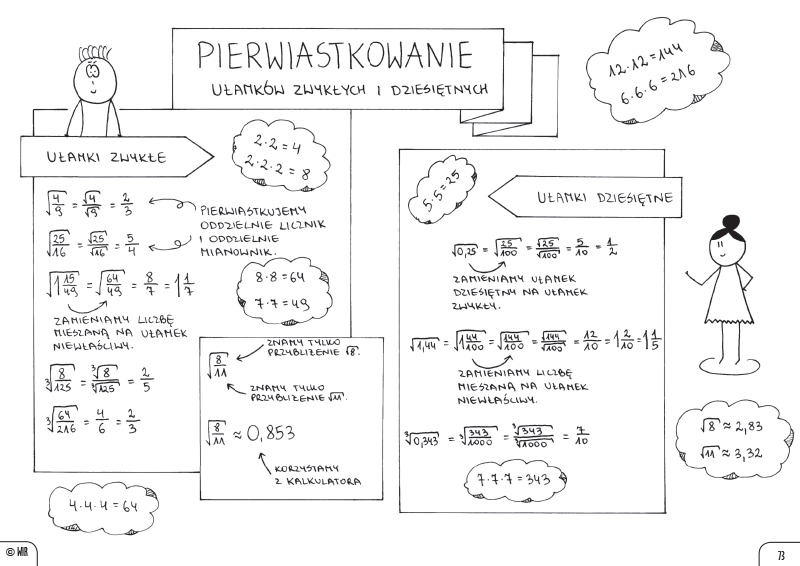 PIERWIASTKOWANIE
UŁAMKÓW ZWYKŁYCH I DZIESIĘTNYCH
12·12=144
6·6·6=216
UŁAMKI ZWYKŁE
2·2=4
2·2·2=8
√(4/9) = √4/√9 = 2/3
√(25/16) = √25/√16 = 5/4
PIERWIASTKUJEMY
ODDZIELNIE LICZNIK
I ODDZIELNIE
MIANOWNIK.
√(1 15/49) = √(64/49) = 8/7 = 1 1/7
8·8=64
7·7=49
ZAMIENIAMY LICZBĘ
MIESZANĄ NA UŁAMEK
NIEWŁAŚCIWY.
∛(8/125) = ∛8/∛125 = 2/5
∛(64/216) = 4/6 = 2/3
4·4·4=64
√(8/11)
ZNAMY TYLKO
PRZYBLIŻENIE √8.
ZNAMY TYLKO
PRZYBLIŻENIE √11.
√(8/11) ≈ 0,853
KORZYSTAMY
Z KALKULATORA
5·5=25
UŁAMKI DZIESIĘTNE
√0,25 = √(25/100) = √25/√100 = 5/10 = 1/2
ZAMIENIAMY UŁAMEK
DZIESIĘTNY NA UŁAMEK
ZWYKŁY.
√1,44 = √(1 44/100) = √(144/100) = √144/√100 = 12/10 = 1 2/10 = 1 1/5
ZAMIENIAMY LICZBĘ
MIESZANĄ NA UŁAMEK
NIEWŁAŚCIWY.
∛0,343 = ∛(343/1000) = ∛343/∛1000 = 7/10
7·7·7=343
√8 ≈ 2,83
√11 ≈ 3,32
© WIR
73